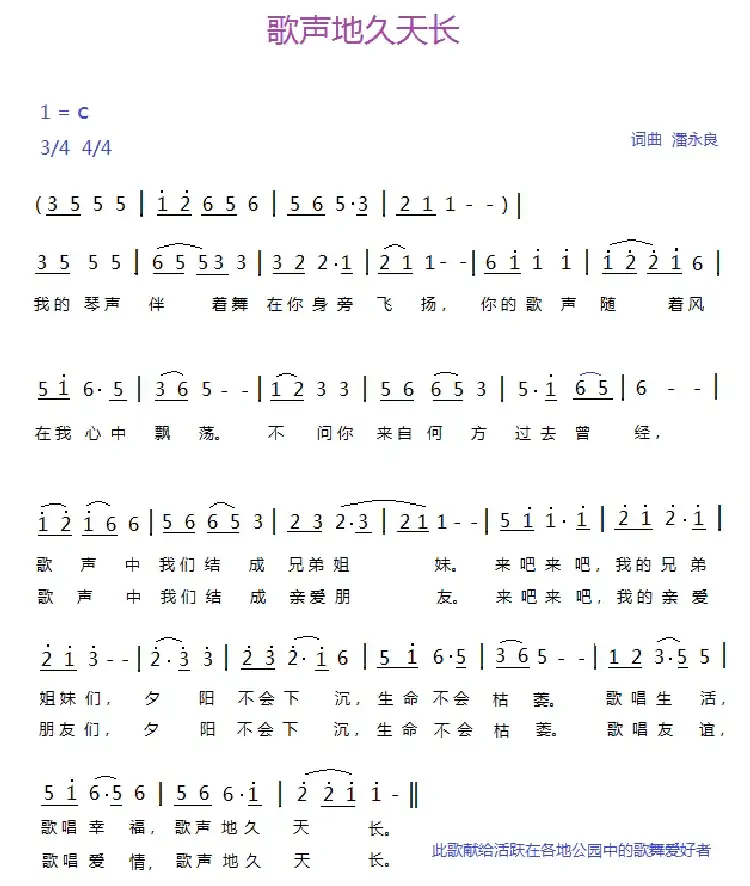 歌声地久天长
1 = C
3/4 4/4
词曲 潘永良
(3 5 5 5 | 1̇ 2̇ 6 5 6 | 5 6 5·3 | 2 1 1 - -)|
3 5 5 5 | 6 5 5 3 3 | 3 2 2·1 | 2 1 1 - - | 6 1̇ 1̇ 1̇ | 1̇ 2̇ 2̇ 1̇ 6 |
我的 琴声 伴 着舞 在你身旁 飞 扬， 你的歌 声 随 着风
5 1̇ 6·5 | 3 6 5 - - | 1 2 3 3 | 5 6 6 5 3 | 5·1̇ 6 5 | 6 - - |
在我 心中 飘 荡。 不 问你 来自何 方 过去 曾 经，
1̇ 2̇ 1̇ 6 6 | 5 6 6 5 3 | 2 3 2·3 | 2 1 1 - - | 5 1̇ 1̇·1̇ | 2̇ 1̇ 2̇·1̇ |
歌 声 中 我们结 成 兄弟姐 妹。 来吧来 吧，我的兄弟
歌 声 中 我们结 成 亲爱朋 友。 来吧来 吧，我的亲爱
2̇ 1̇ 3̇ - - | 2̇·3̇ 3̇ | 2̇ 3̇ 2̇·1̇ 6 | 5 1̇ 6·5 | 3 6 5 - - | 1 2 3·5 5 |
姐妹们， 夕 阳 不会下 沉，生命不会 枯 萎。 歌唱生 活，
朋友们， 夕 阳 不会下 沉，生命不会 枯 萎。 歌唱友 谊，
5 1̇ 6·5 6 | 5 6 6·1̇ | 2̇ 2̇ 1̇ 1̇ - ‖
歌唱 幸 福，歌声地久 天 长。
歌唱 爱 情，歌声地久 天 长。
此歌献给活跃在各地公园中的歌舞爱好者